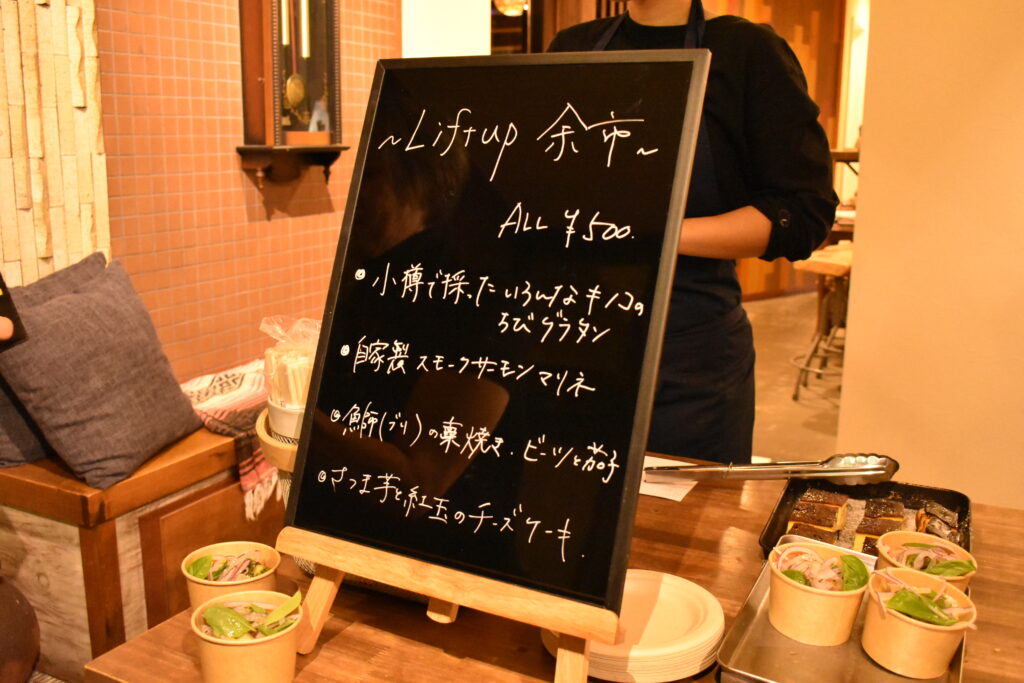 ~Liftup 余市~
ALL ¥500.
◎ 小樽で採ったいろんなキノコの
ちびグラタン
◎ 自家製スモークサーモンマリネ
◎ 鰤(ブリ)の藁焼き、ビーツと茄子
◎ さつま芋と紅玉のチーズケーキ.